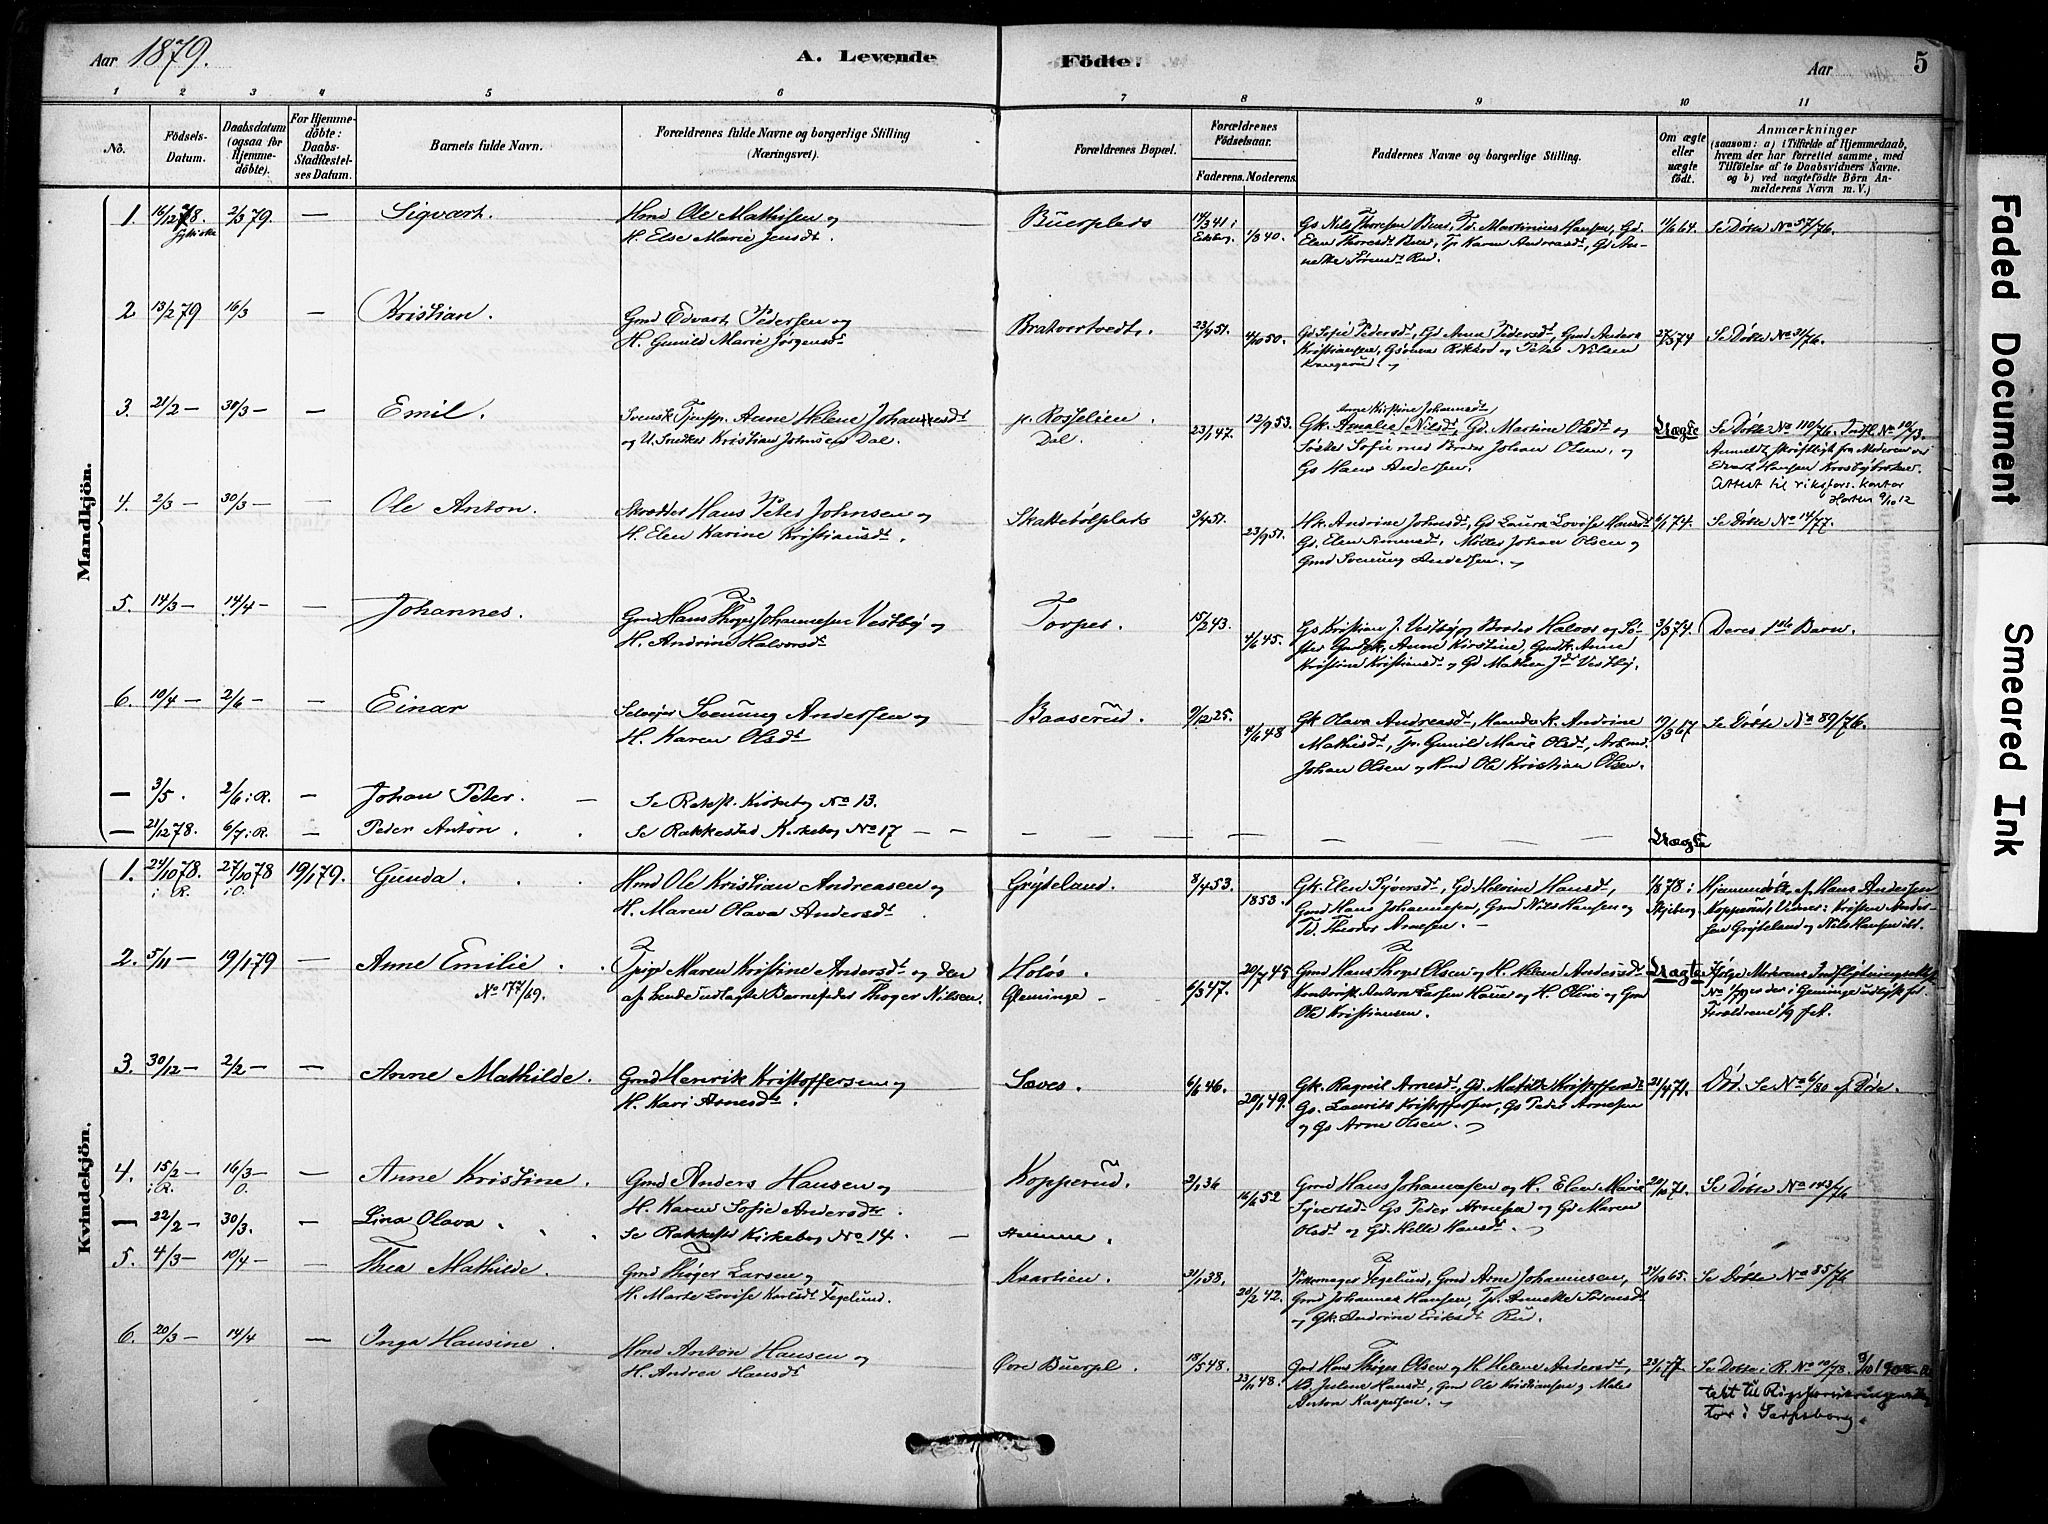 Aar 1879.
A. Levende
Födte.
Aar
5
1 2 3 4 5 6 7 8 9 10 11
No.
Födsels-
Datum.
Daabsdatum
(ogsaa för
Hjemme-
döbte).
For Hjemme-
döbte:
Daabs-
Stadfæstel-
ses Datum.
Barnets fulde Navn.
Forældrenes fulde Navne og borgerlige Stilling
(Næringsvei).
Forældrenes Bopæl.
Forældrenes
Födselsaar.
Faderens. Moderens.
Faddernes Navne og borgerlige Stilling.
Om ægte
eller
uægte
födt.
Anmærkninger
(saasom: a) i Tilfælde af Hjemmedaab,
hvem der har forrettet samme, med
Tilföielse af to Daabsvidners Navne.
og b) ved uægtefödte Börn An-
melderens Navn m. V.)
Mandkjön.
1. 16/12 78. 2/3 79. — Sigvart. Hmd Ole Mathisen og
H. Else Marie Jensdt.
Buerplads 14/3 41 i 1/8 40.
Gs Nils Thoresen Buer, Td. Martinius Hansen, Gd.
Elen Thoresdt Buer, Tp Karen Andreasdt, Gd An-
nette Sørensdt Rud.
11/6 64. Se Døbte No 57/76.
2 13/2 79 16/3 — Kristian. Gmd Edvart Pedersen og
H. Gunild Marie Jørgensdt
Bratvortvedt. 23/4 51. 4/10 50.
Gd Sofie Pedersdt, Gd Anna Pedersdt, Gmd Anders
Kristiansen, og Peter Nilsen
27/3 74 Se Døbte No 31/76.
3. 21/2 — 30/3 — — Emil. Svensk Tjenstp. Anne Helene Johannesdt
og U. Snedker Kristian Johnsen Dal.
p. Rosselien.
Dal. 23/1 47. 12/9 53.
Anne Kirstine Johannesdt,
Gk. Amalie Nilsdt, Gd. Martine Olsdt og
Søster Sofie med Broder Johan Olsen, og
Gs Hans Andersen.
Uægte Se Døbte No 110/76. Indfl. No 10/73.
Anmeldt skriftligt fra Moderen ved
Edvart Hansen
Attest til riksfors. kontor
Horten 9/10 12
4. 2/3 — 30/3 — — Ole Anton. Skrædder Hans Peter Johnsen og
H. Elen Karine Kristiansdt.
Skattebølplads 3/4 51. 23/9 51.
Hk. Andrine Johnsdt, Gd Laura Lovise Hansdt
Gd. Elen Simensdt, Møller Johan Olsen og
Gmd Svenung Andersen.
6/1 74. Se Døbte No 14/77.
5. 14/3 — 14/4 — — Johannes. Gmd Hans Thøger Johannesen Vestby og
H. Andrine Halvorsdt
Torper. 15/2 43. 4/6 45.
Gs Kristian J. Vestby og Broder Halvor og Sø-
ster Gmdsk. Anne Kirstine, Gmdsk. Anne
Kristine Kristiansdt og Gd Mathea Jdt Vestby.
3/3 74. Deres 1ste Barn.
6. 10/4 — 2/6 — — Einar Selveier Svenung Andersen og
H. Karen Olsdt
Baaserud. 9/12 25. 4/6 48
Gk Olava Andreasdt, Andrine
Mathisdt, Tp. Gunild Marie Olsdt, Arbmd.
Johan Olsen og Hmd Ole Kristian Olsen.
19/3 67 Se Døbte No 89/76.
— 3/5. 2/6 i R. — Johan Peter. — Se Rakst. Kirkebog No 13.
— 21/12 78. 6/7 i R. — Peder Anton. Se Rakkestad Kirkebog No 17 — — Uægte
Kvindekjön.
1. 24/10 78. i R. 27/10 78 i O. 19/1 79. Gunda. Hmd Ole Kristian Andreasen og
H. Maren Olava Andersdt
Grÿteland. 8/4 53. 1853.
Gk. Elen Syversdt, Gd. Helvine Hansdt,
Gmd Hans Johannesen, Gmd Nils Hansen og
Td. Theodor Arnesen. —
1/8 78 i
Skjeberg. Hjemmedøbt af Hans Andersen
Kopperud, Vidner: Kristen Ander-
sen Grÿteland og Nils Hansen ibd.
2. 5/11 — 19/1 79 — Anne Emilie.
No 177/69. Pige Maren Kristine Andersdt og den
af hende udlagte Barnefader Thøger Nilsen.
Holøs.
Glemminge — 6/3 47. 20/7 45
Gmd Hans Thøger Olsen og H. Helene Andersdt
Kontorist Anton Larsen Haue og H. Oline og Gm
Ole Kristiansen.
Uægte Ifølge Moderens Indflytningsattest
No 1/79 er den i Glemminge
3. 30/12 — 2/2 — — Anne Mathilde. Gmd Henrik Kristoffersen og
H. Kari Arnesdt.
Sæves. 6/6 46. 20/1 49.
Gk. Ragnil Arnesdt, Gd. Matilde Kristoffersdt
Gs. Laurits Kristoffersen, Gs Peder Arnesen
og Gs Arne Olsen.
21/4 71. Død. Se No 6/80 af Døde.
4. 15/2 — i R. 16/3 — O. — Anne Kristine. Gmd Anders Hansen og
H. Karen Sofie Andersdt.
Kopperud. 2/1 36 16/6 52
Gmd Hans Johannesen og H. Elen Marie
Syversdt. Gs Peder Arnesen og Gd Maren
Olsdt og Gd. Helle Hansdt.
20/10 71. Se Døbte No 143/76
— 22/2 — 30/3. — Lina Olava. Se Rakkest. Kirkebog No 14. —
5. 4/3 — 10/4 — — Thea Mathilde. Gmd Thøger Larsen og
H. Marte Lovise Karlsdt Fegelund.
Kvartien. 31/1 38. 20/2 42.
Skomager Fegelund, Gmd Arne Johannesen,
Gmd Johannes Hansen, Tp. Annette Sørensdt
og Gk. Andrine Eriksdt Rud.
24/10 65. Se Døbte No 85/76
6. 20/3 — 14/4 — Inga Hansine. Hmd Anton Hansen og
H. Andrea Hansdt
Øvre Buerpl. 18/5 48. 23/11 48.
Gmd Hans Thøger Olsen og H. Helene Andersdt,
Julene Hansdt, Gmd Ole Kristiansen og Maler
Anton Kaspersen.
23/1 77. Se Døbte i R. No 10/78.
test til Rigsforsikringens
tor i Sarpsborg.
Faded Document
Smeared Ink